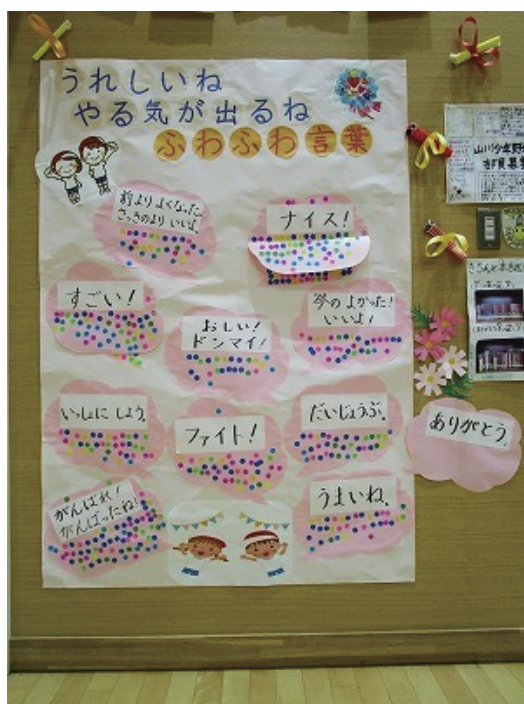 うれしいね
やる気が出るね
ふわふわ言葉
前よりよくなった。
さっきのよりいいよ
ナイス!
すごい!
おしい!
ドンマイ!
今のよかった!
いいよ!
いっしょにしよう。
ファイト!
だいじょうぶ。
ありがとう。
がんばれ!
がんばったね!
うまいね。